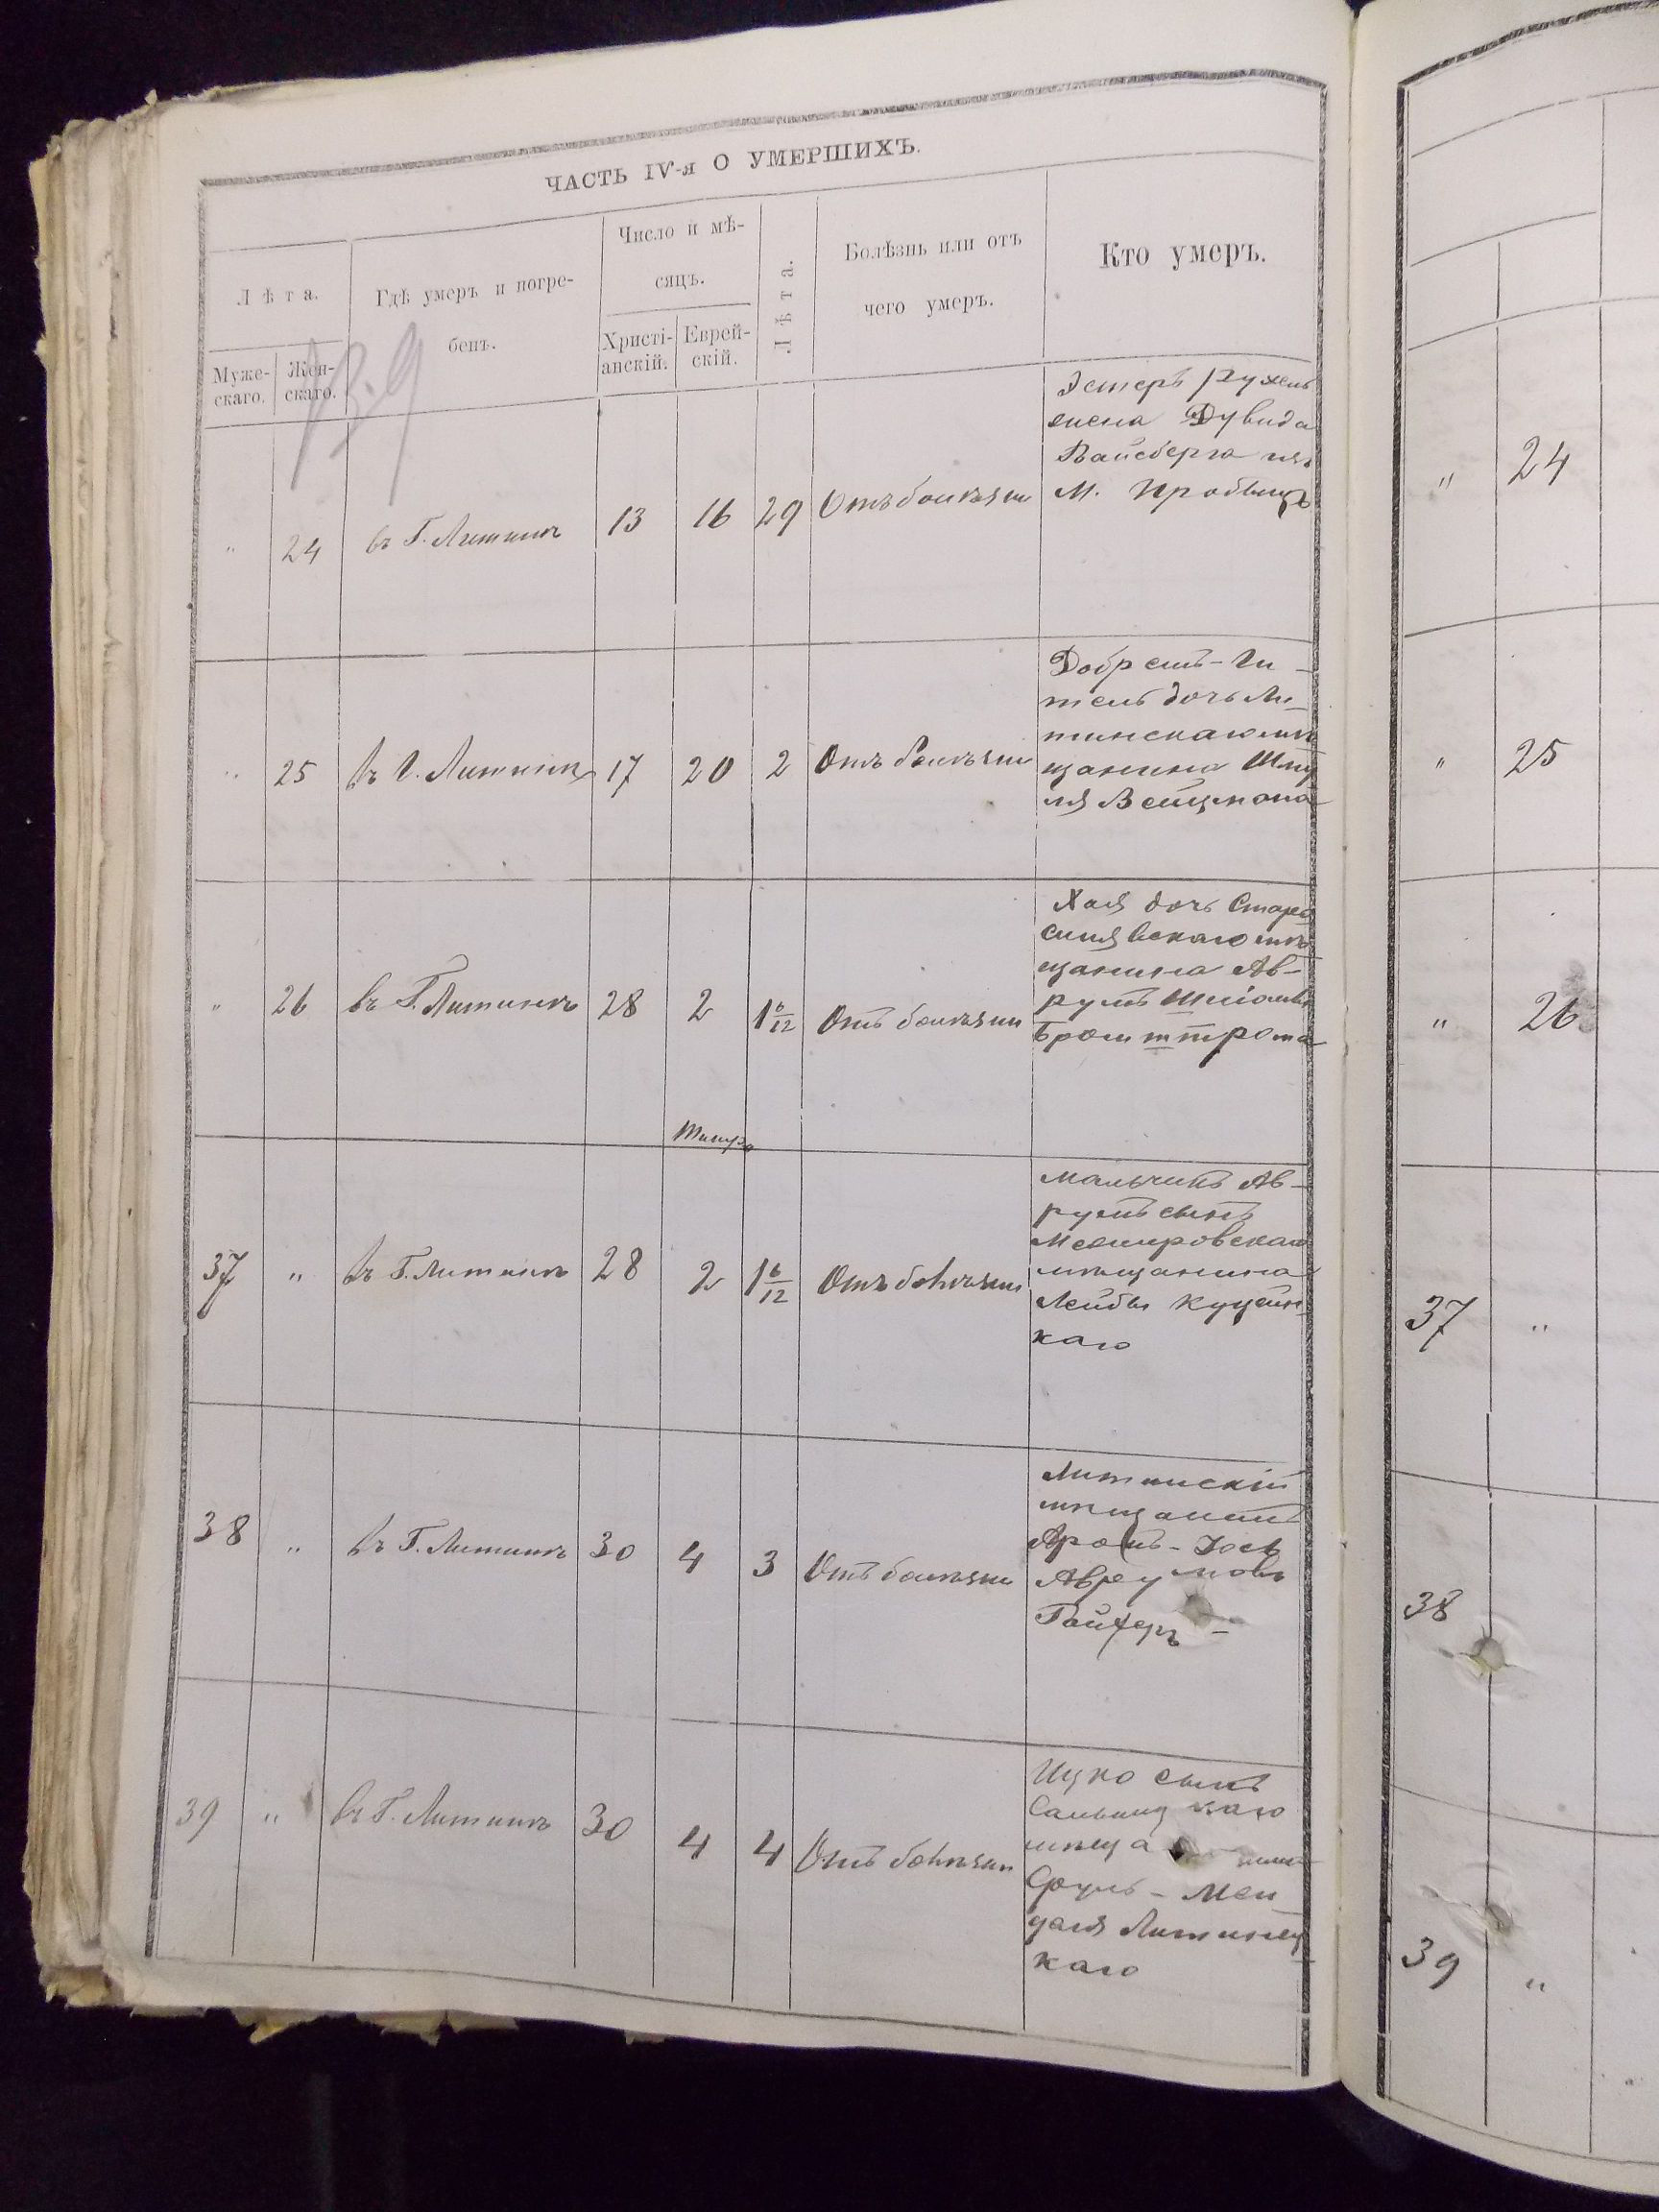 ЧАСТЬ IV-я О УМЕРШИХЪ.
Лѣта.
Муже-
скаго.
Жен-
скаго.
Гдѣ умеръ и погре-
бенъ.
Число и мѣ-
сяцъ.
Христі-
анскій.
Еврей-
скій.
Лѣта.
Болѣзнь или отъ
чего умеръ.
Кто умеръ.
139
" 24 въ Г. Литинѣ 13 16 29 Отъ болѣзни
Эстеръ Рухель
жена Дувида
Вайсберга изъ
М.
" 25 въ Г. Литинѣ 17 20 2 Отъ болѣзни
дочь Ли-
тинскаго мѣ
щанина Шму
ля Вейцмана
" 26 въ Г. Литинѣ 28 2 1 6/12 Отъ болѣзни
Хая дочь Старо
синявскаго мѣ
щанина Ав-
румъ
37 " въ Г. Литинѣ 28 2 1 6/12 Отъ болѣзни
мальчикъ Ав-
румъ сынъ
Межировскаго
мѣщанина
Лейбы
каго
38 " въ Г. Литинѣ 30 4 3 Отъ болѣзни
Литинскій
мѣщанинъ
Аронъ-Іось
Аврумовъ
39 " въ Г. Литинѣ 30 4 4 Отъ болѣзни
Ицко сынъ
каго
мѣща
Сруль-Мен
деля Литинец
каго
" 24
" 25
" 26
37 "
38
39 "